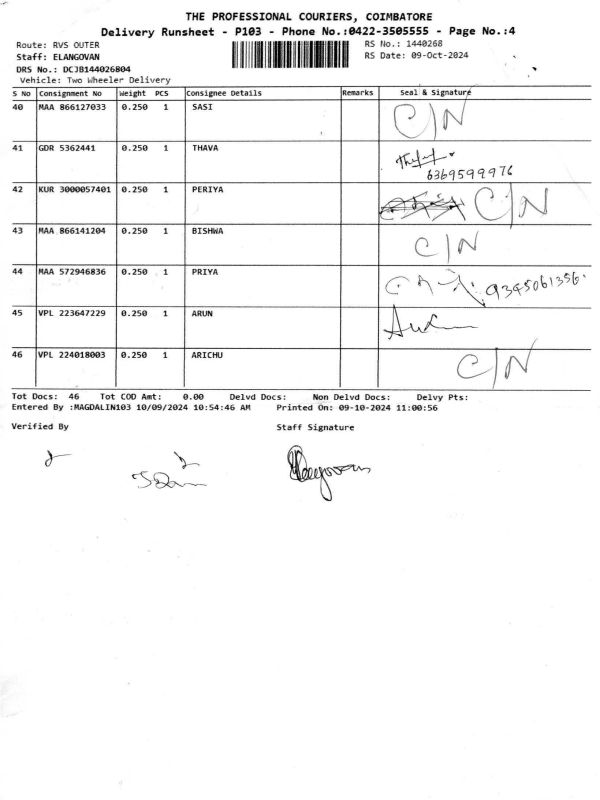 THE PROFESSIONAL COURIERS, COIMBATORE
Delivery Runsheet - P103 - Phone No.:0422-3505555 - Page No.:4
Route: RVS OUTER
RS No.: 1440268
Staff: ELANGOVAN
RS Date: 09-Oct-2024
DRS No.: DCJB144026804
Vehicle: Two Wheeler Delivery
S No Consignment No Weight PCS Consignee Details Remarks Seal & Signature
40 MAA 866127033 0.250 1 SASI C/N
41 GDR 5362441 0.250 1 THAVA
6369599976
42 KUR 3000057401 0.250 1 PERIYA C/N
43 MAA 866141204 0.250 1 BISHWA C/N
44 MAA 572946836 0.250 1 PRIYA 9345061356
45 VPL 223647229 0.250 1 ARUN
46 VPL 224018003 0.250 1 ARICHU C/N
Tot Docs: 46 Tot COD Amt: 0.00 Delvd Docs: Non Delvd Docs: Delvy Pts:
Entered By :MAGDALIN103 10/09/2024 10:54:46 AM Printed On: 09-10-2024 11:00:56
Verified By Staff Signature